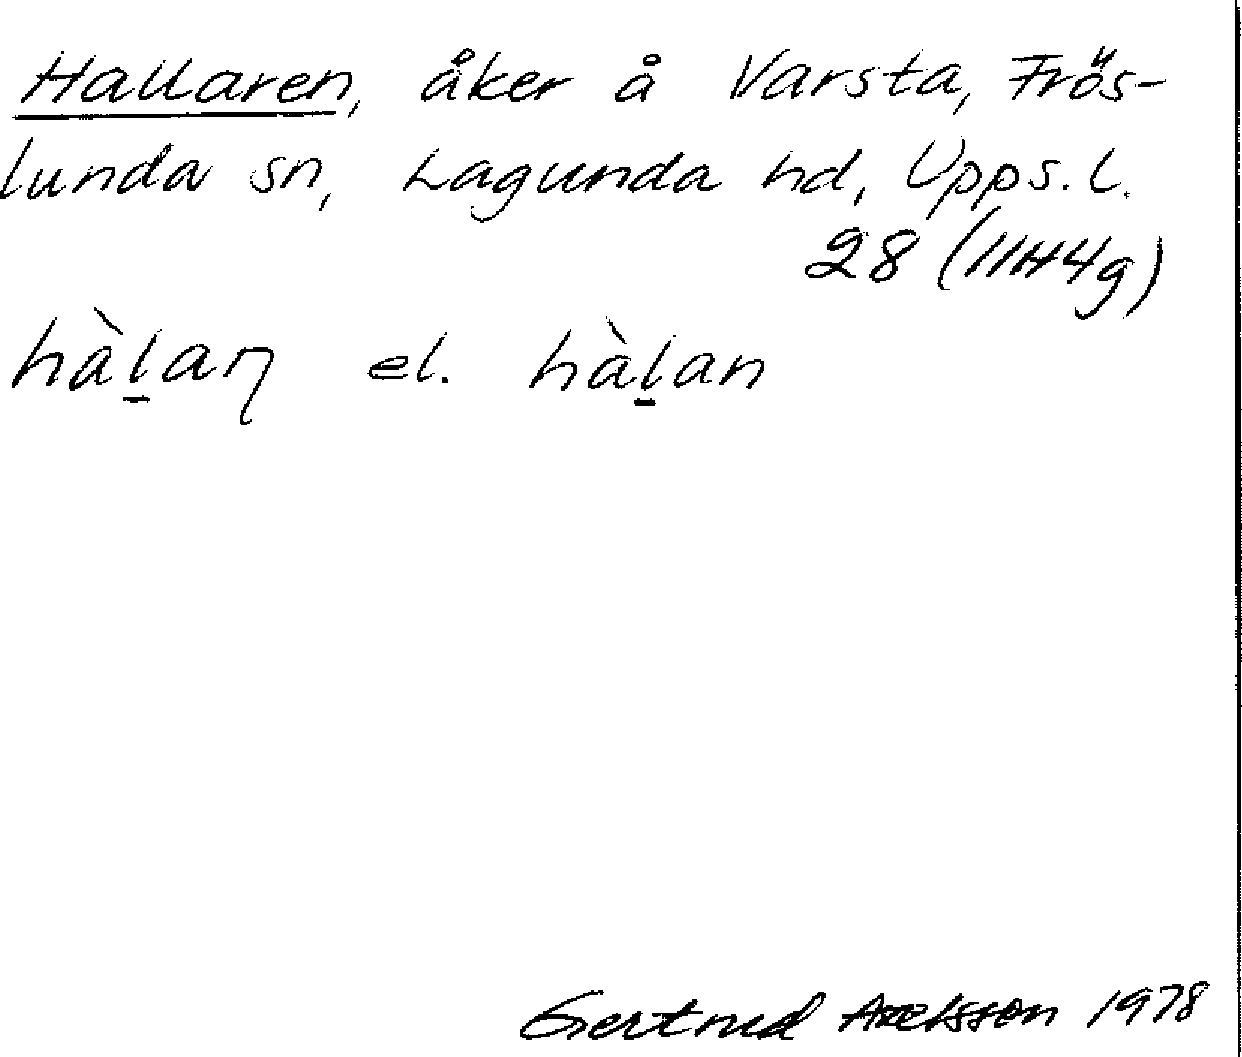 Hallaren, åker å Varsta, Frös-
lunda sn, Lagunda hd, Upps. l.
28 (11H4g)
hàl̠aꞃ el. hàl̠an
Gertrud Axelsson 1978